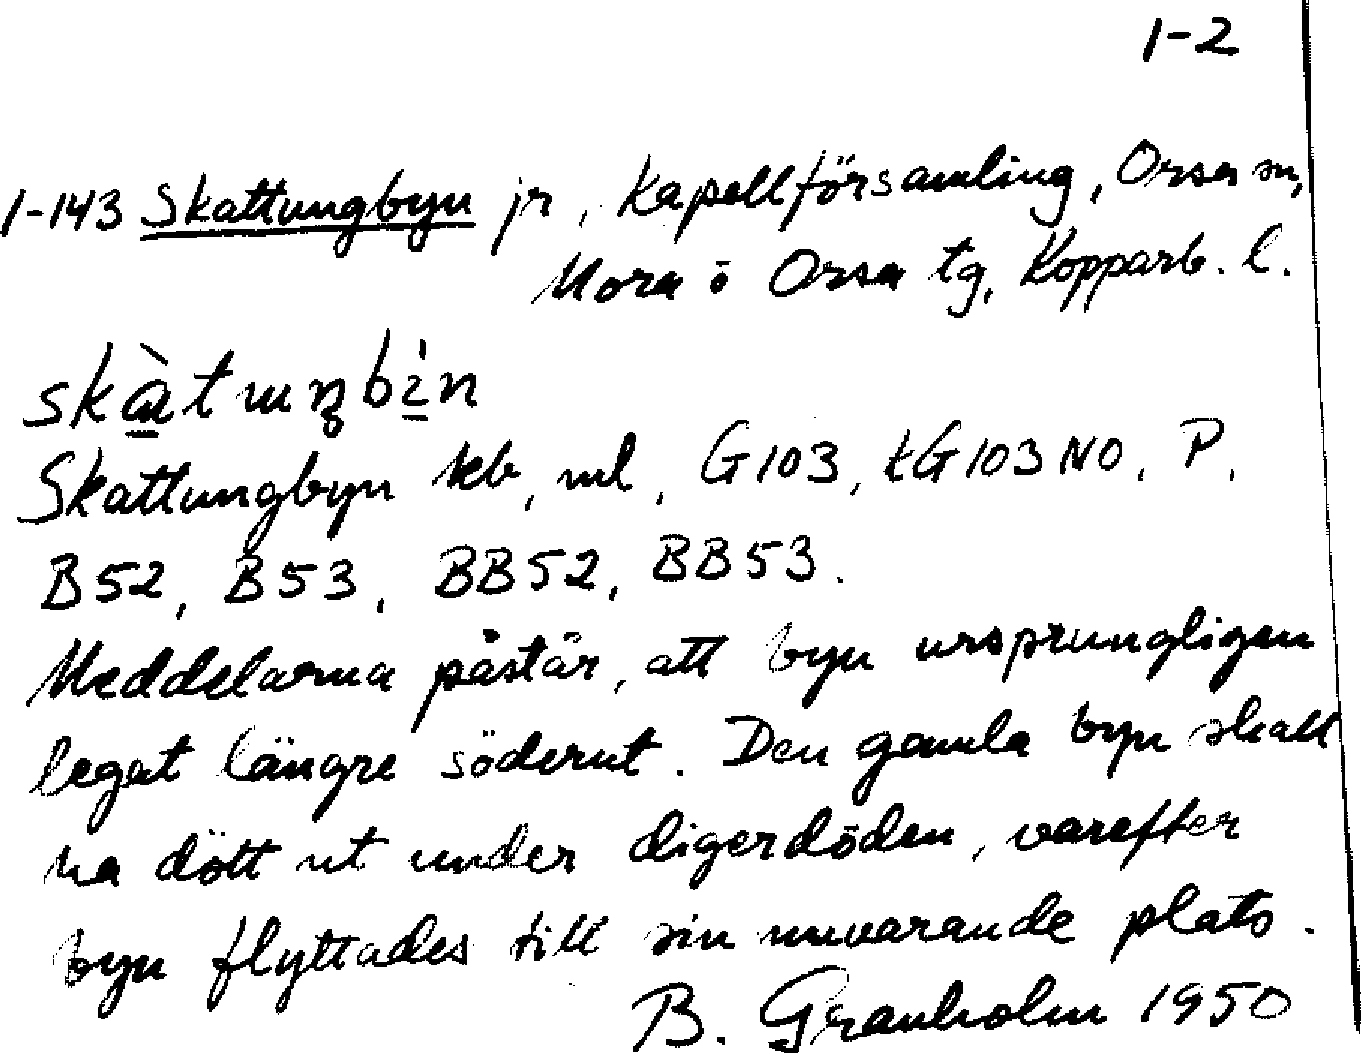 1-2
1-143 Skattungbyn jr, Kapellförsamling, Orsa sn,
Mora o Orsa tg, Kopparb. l.
skàtuŋbìn
Skattungbyn kb, ml, G103, tG103NO, P,
B52, B53, BB52, BB53.
Meddelarna påstår, att byn ursprungligen
legat längre söderut. Den gamla byn skall
ha dött ut under digerdöden, varefter
byn flyttades till sin nuvarande plats.
B. Granholm 1950